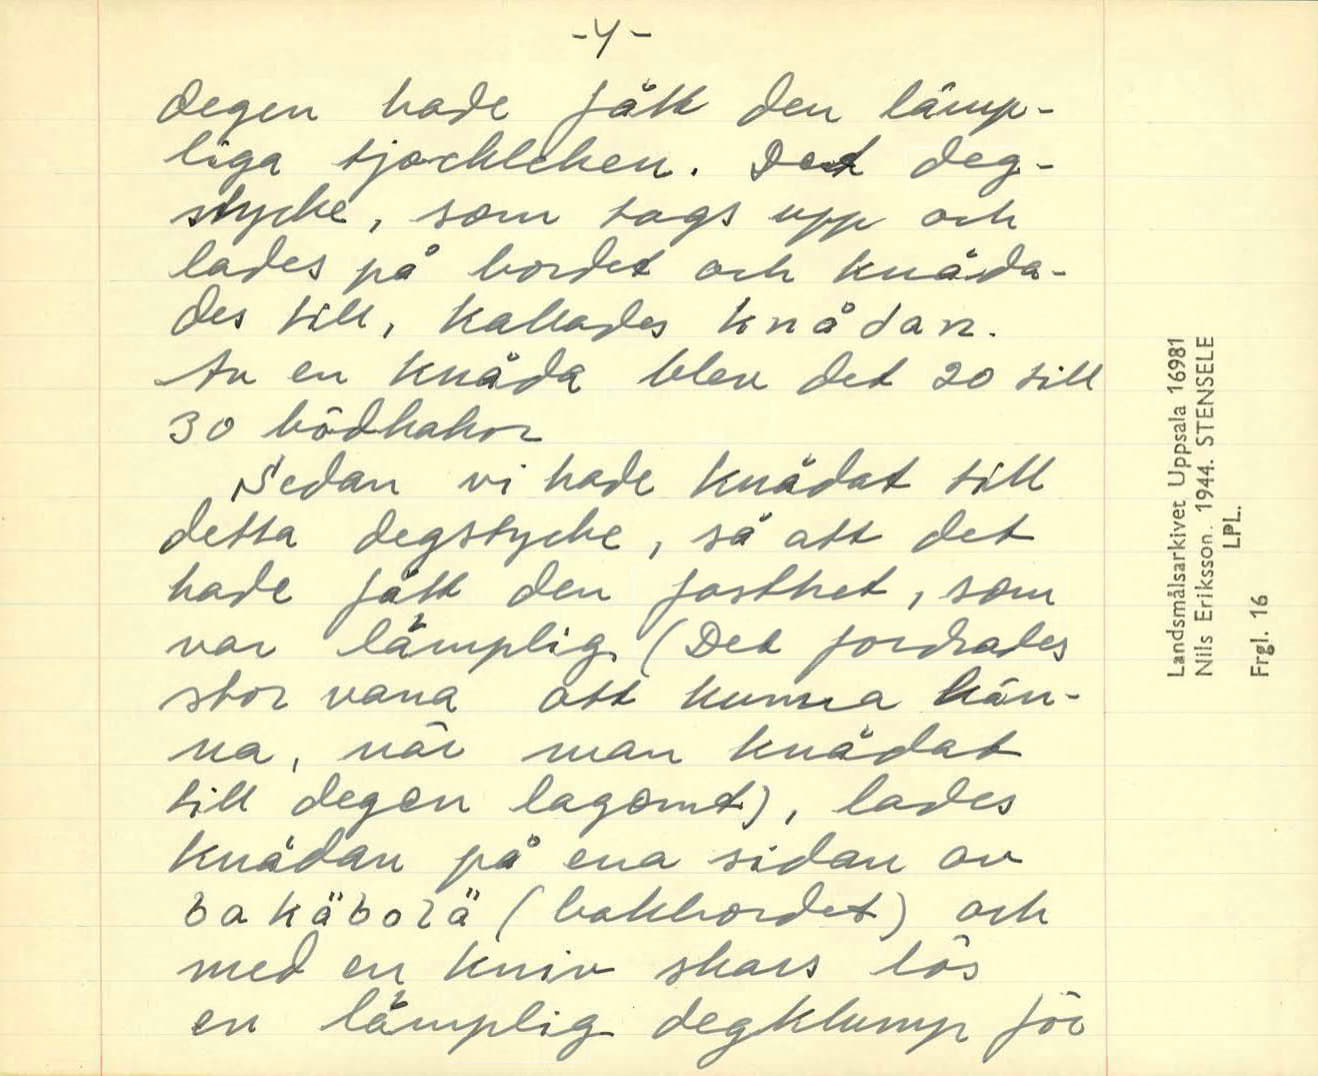 -4-
degen hade fått den lämp-
liga tjockleken. Det deg-
stycke, som togs upp och
lades på bordet och knåda-
des till, kallades knådan.
Av en knåda blev det 20 till
30 brödkakor
Sedan vi hade knådat till
detta degstycke, så att det
hade fått den fasthet, som
var lämplig (Det fordrades
stor vana att kunna kän-
na, när man knådat
till degen lagomt), lades
knådan på ena sidan av
bakäbolä (bakbordet) och
med en kniv skars lös
en lämplig degklump för
Landsmålsarkivet Uppsala 16981
Nils Eriksson. 1944. STENSELE
LPL.
Frgl. 16